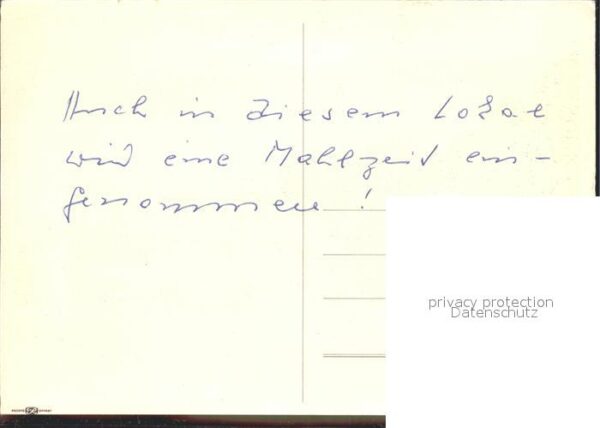 Auch in diesem Lokal
wird eine Mahlzeit ein-
genommen !
privacy protection
Datenschutz